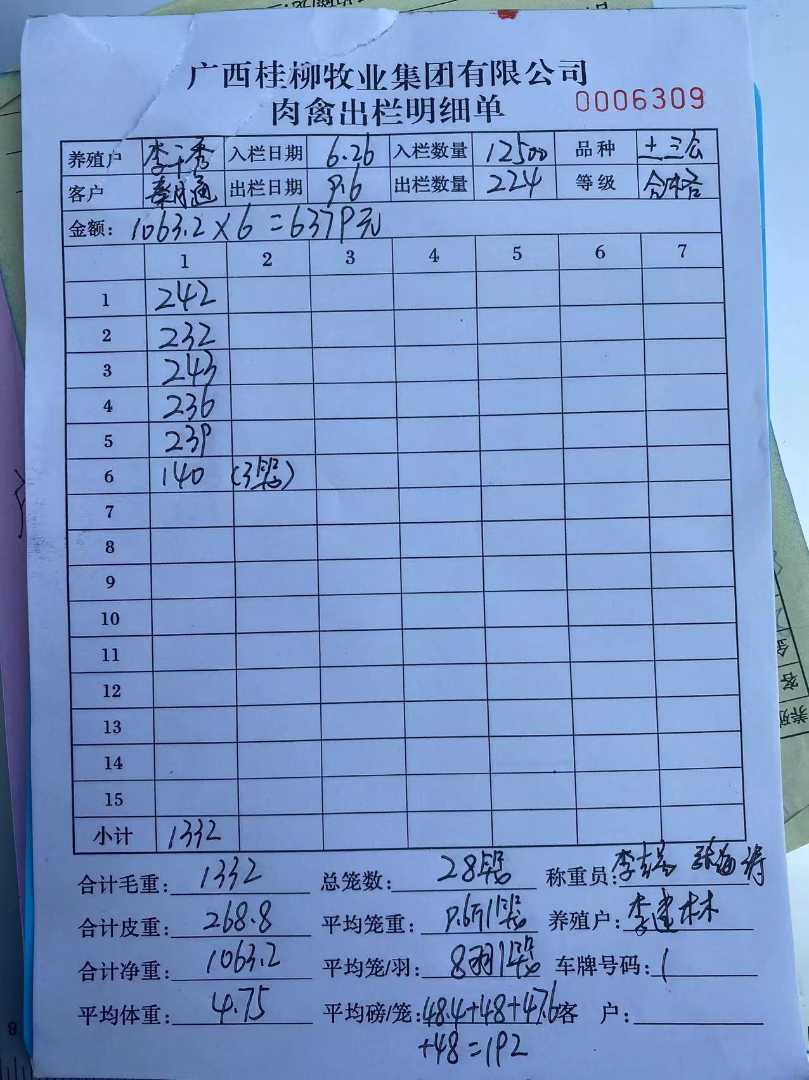 广西桂柳牧业集团有限公司
肉禽出栏明细单 0006309
养殖户 李干秀 入栏日期 6.26 入栏数量 12500 品种 土三公
客户 出栏日期 9.6 出栏数量 224 等级 合格
金额: 1063.2×6=6379元
1 2 3 4 5 6 7
1 242
2 232
3 243
4 236
5 239
6 140 (3笼)
7
8
9
10
11
12
13
14
15
小计 1332
合计毛重: 1332 总笼数: 28笼 称重员:
合计皮重: 268.8 平均笼重: 9.6斤1笼 养殖户: 李建林
合计净重: 1063.2 平均笼/羽: 8羽1笼 车牌号码:
平均体重: 4.75 平均磅/笼: 48.4+48+47.6 客 户:
+48=192